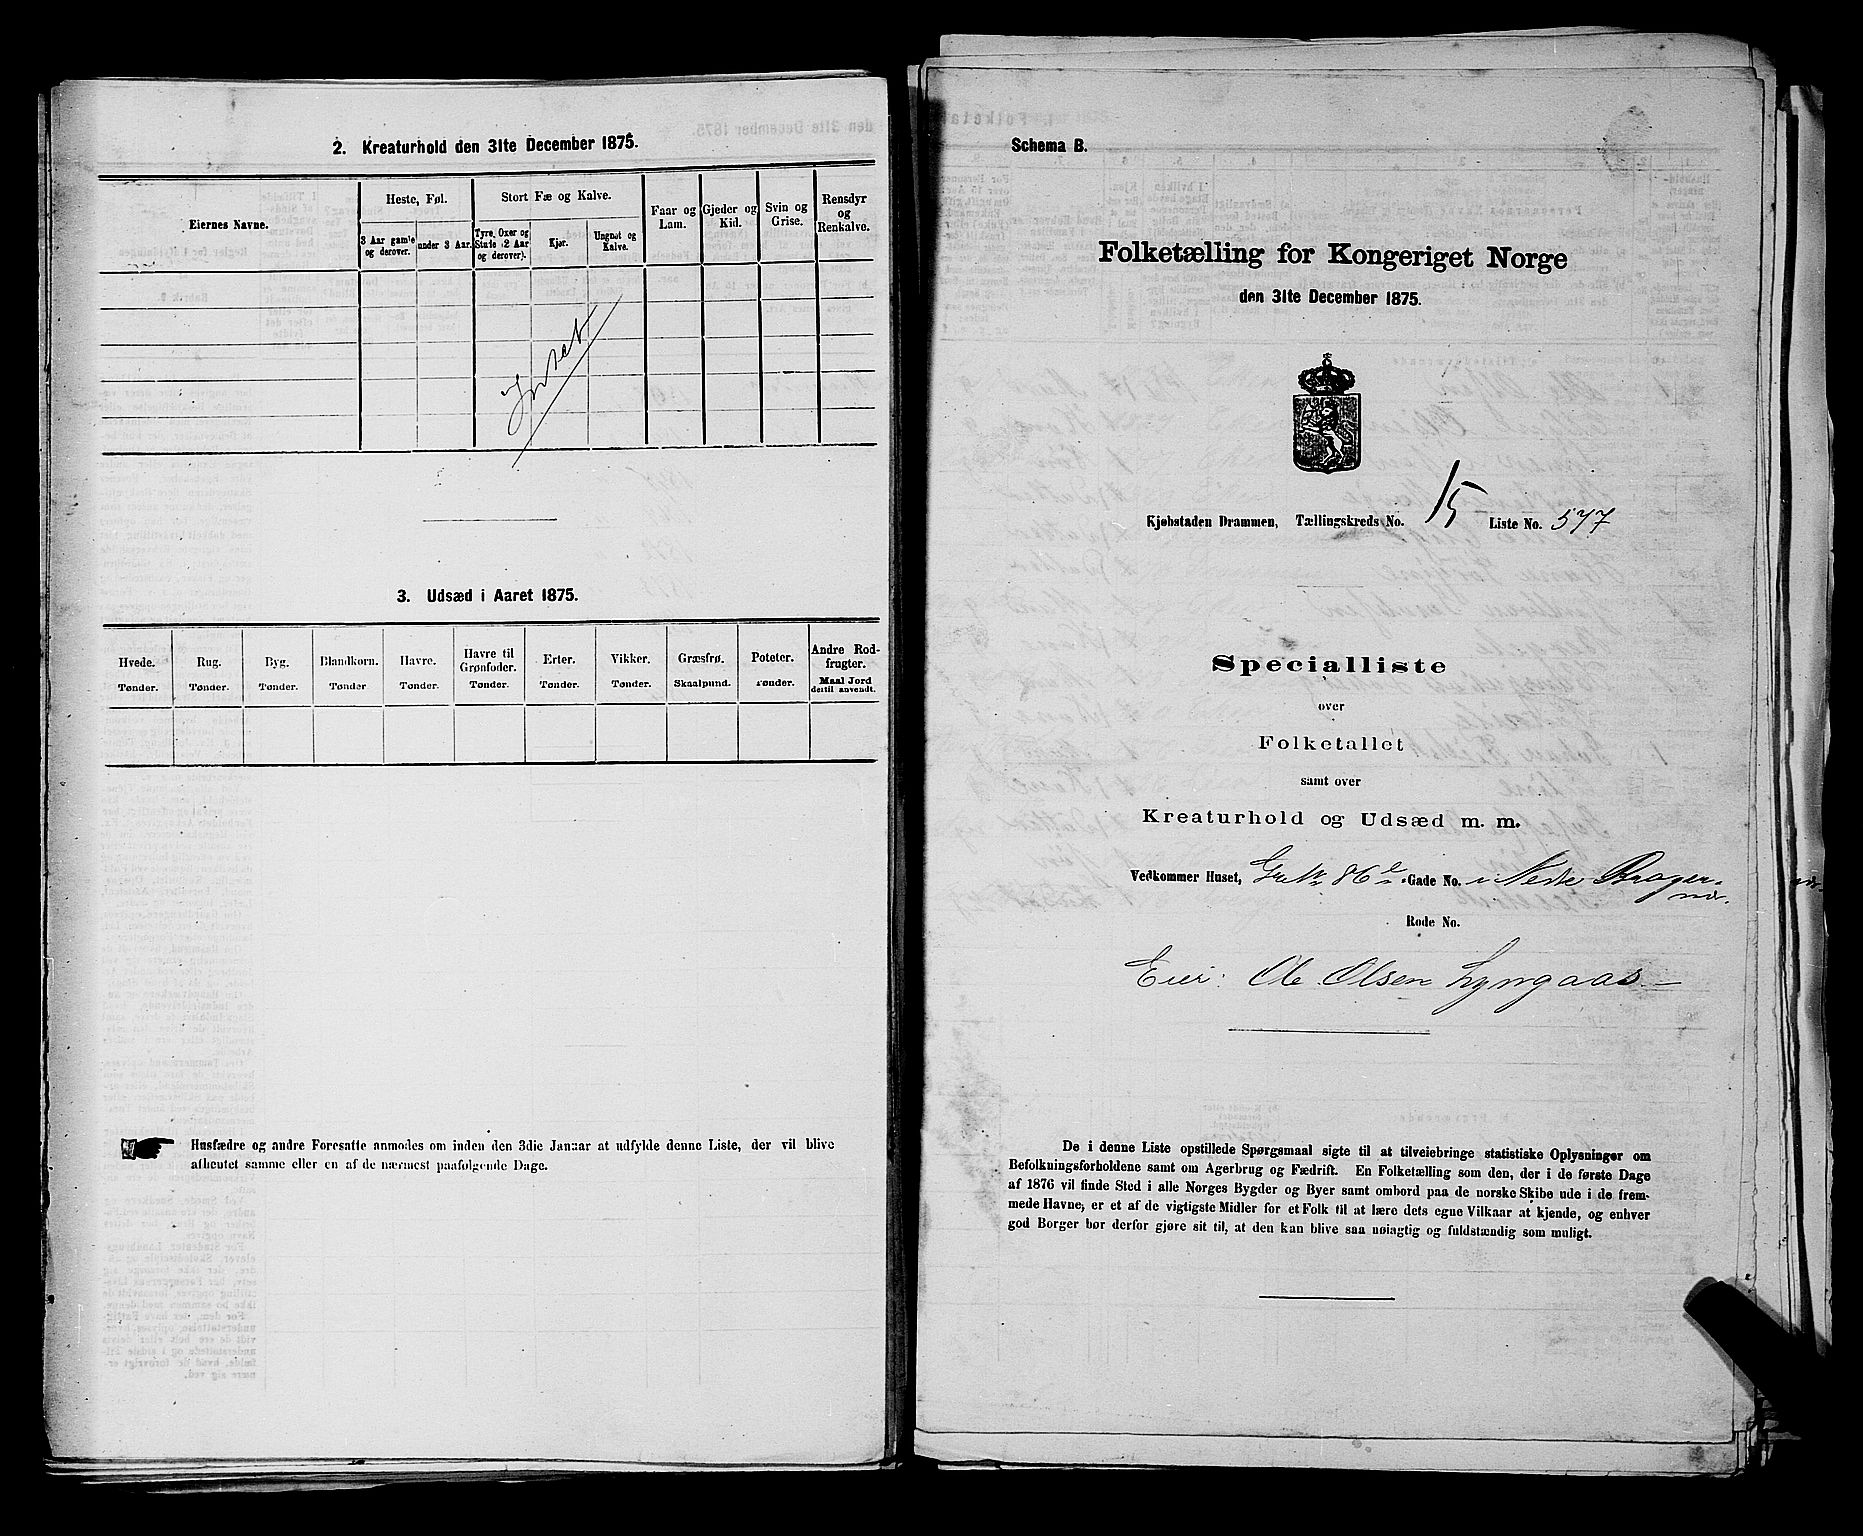 2. Kreaturhold den 31te December 1875.
Eiernes Navne.
Heste, Føl.
Stort Fæ og Kalve.
Faar og Lam.
Gjeder og Kid.
Svin og Grise.
Rensdyr og Renkalve.
3 Aar gamle og derover.
under 3 Aar.
Tyre, Oxer og Stude (2 Aar og derover).
Kjør.
Ungnøt og Kalve.
Intet
3. Udsæd i Aaret 1875.
Hvede. Rug. Byg. Blandkorn. Havre. Havre til Grønfoder. Erter. Vikker. Græsfrø. Poteter. Andre Rodfrugter.
Tønder. Tønder. Tønder. Tønder Tønder. Tønder. Tønder. Tønder. Skaalpund. Tønder. Maal Jord dertil anvendt.
Husfædre og andre Foresatte anmodes om inden den 3die Januar at udfylde denne Liste, der vil blive
afhentet samme eller en af de nærmest paafølgende Dage.
Schema B.
Folketælling for Kongeriget Norge
den 31te December 1875.
Kjøbstaden Drammen, Tællingskreds No. 15 Liste No. 577
Specialliste
over
Folketallet
samt over
Kreaturhold og Udsæd m. m.
Vedkommer Huset, 86 Gade No. i Nedre Brager-
nes.
Rode No.
Eier: Ole Olsen Lyngaas
De i denne Liste opstillede Spørgsmaal sigte til at tilveiebringe statistiske Oplysninger om
Befolkningsforholdene samt om Agerbrug og Fædrift. En Folketælling som den, der i de første Dage
af 1876 vil finde Sted i alle Norges Bygder og Byer samt ombord paa de norske Skibe ude i de frem-
mede Havne, er et af de vigtigste Midler for et Folk til at lære dets egne Vilkaar at kjende, og enhver
god Borger bør derfor gjøre sit til, at den kan blive saa nøiagtig og fuldstændig som muligt.